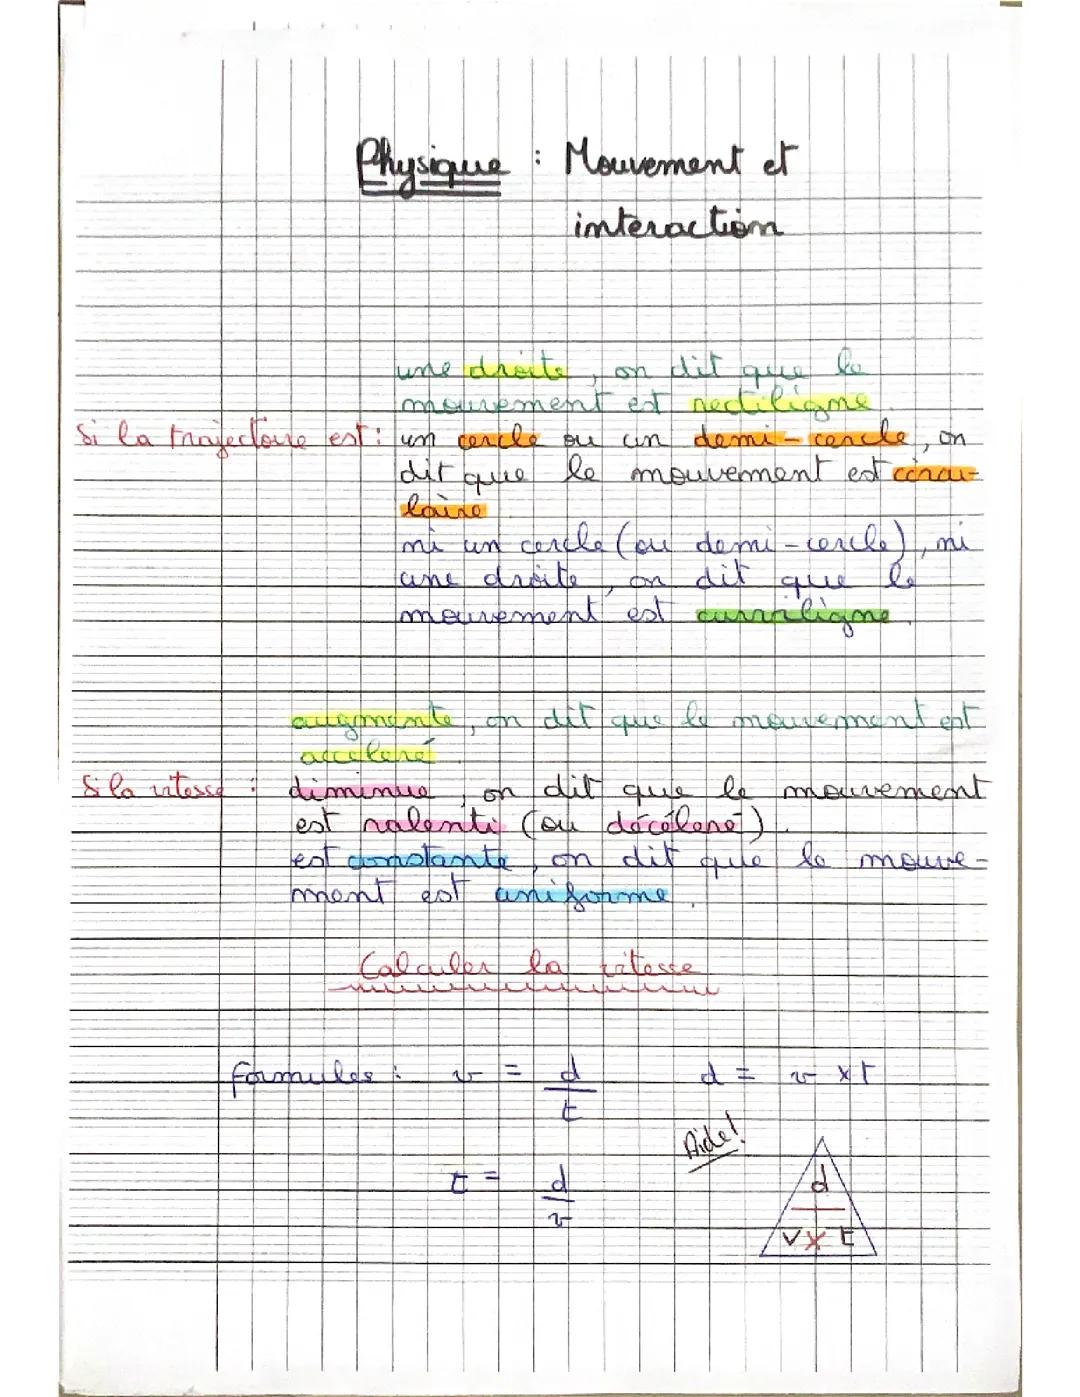 Physique : Mouvement et
interaction
une droite, on dit que le
mouvement est rectiligne.
Si la trajectoire est : un cercle ou un demi-cercle, on
dit que le mouvement est circu-
laire
ni un cercle (ou demi-cercle), ni
une droite, on dit que le
mouvement est curviligne.
augmente, on dit que le mouvement est
accéléré
Si la vitesse : diminue, on dit que le mouvement
est ralenti (ou décéléré).
est constante, on dit que le mouve-
ment est uniforme.
Calculer la vitesse
formules : v = d/t d = v x t
Aide!
t = d/v
d
v x t